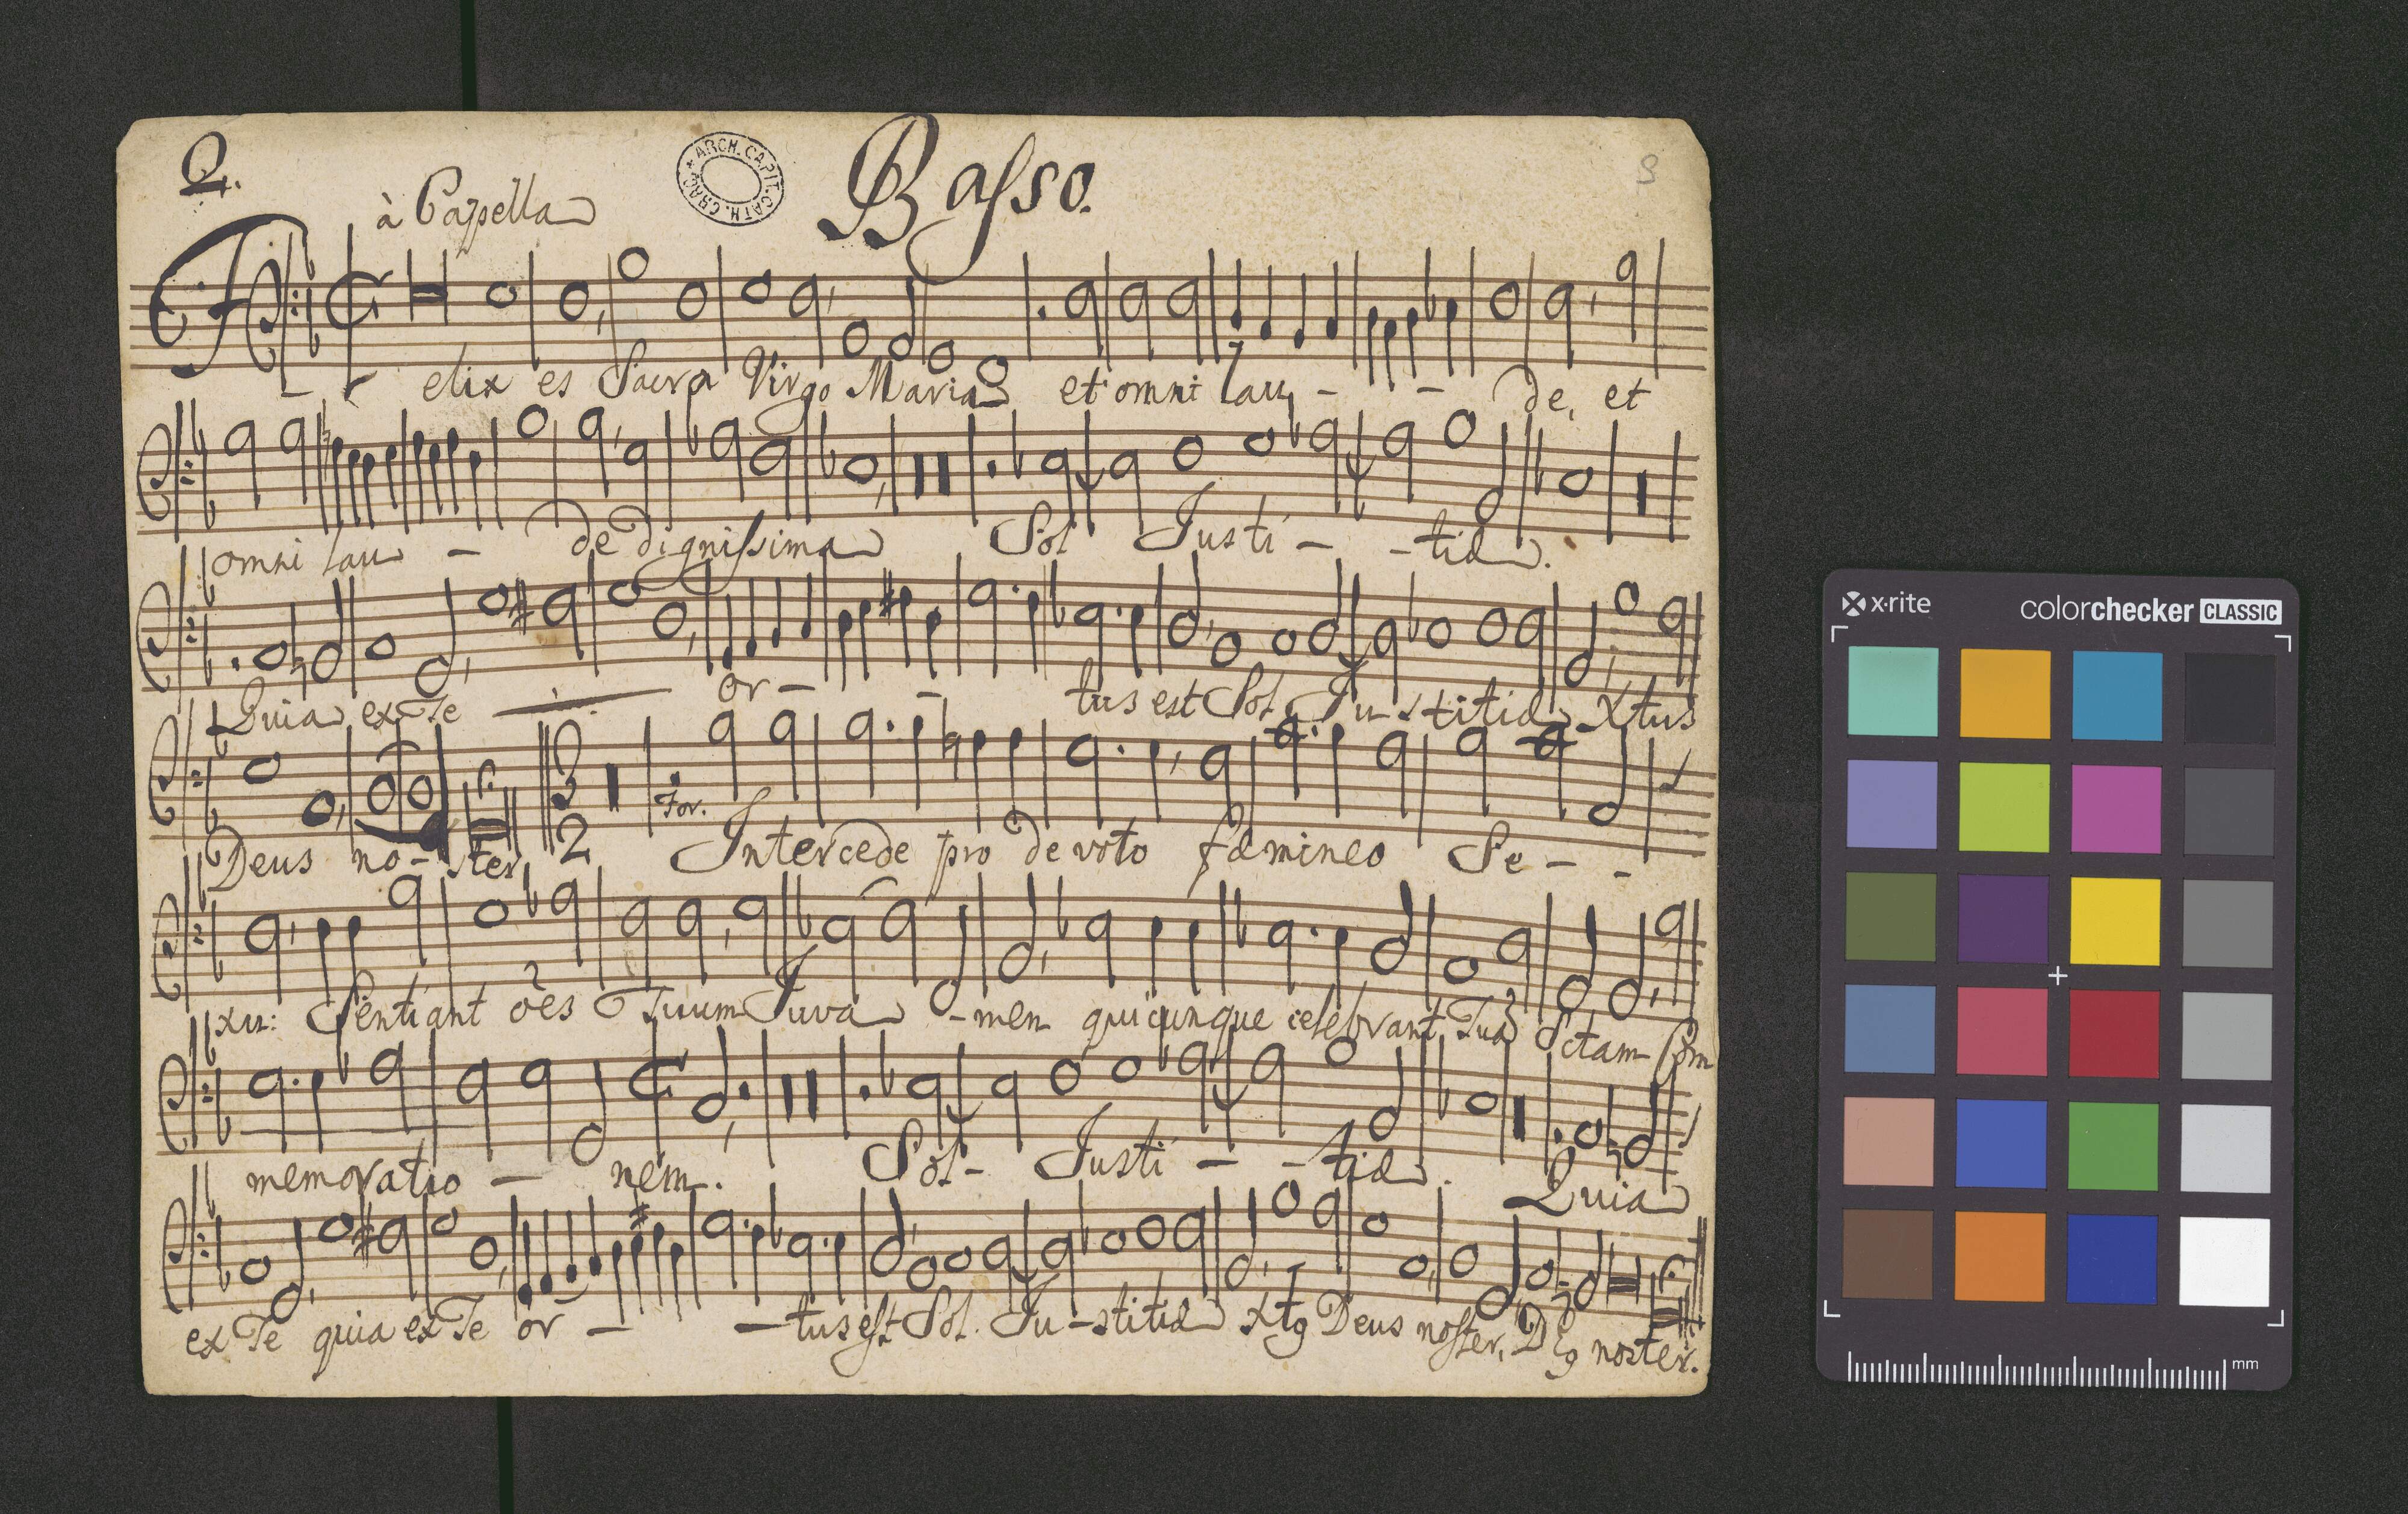 2.
à Capella
ARCH. CAPIT. CATH. CRAC.
Basso.
3
Felix es Sacra Virgo Maria et omni lau - - de, et
omni lau - de dignissima Sol Justi - - tiæ.
Quia ex Te or - - tus est Sol Ju - stitiæ Xtus
Deus no - ster 3 2 For. Intercede pro devoto fæmineo Se - -
xu: Sentiant oēs Tuum Juva - men quicunque celebrant Tuā Sctam Com
memoratio - nem. Sol - Justi - - tiæ. Quia
ex Te quia ex Te or - - tus est Sol Ju - stitiæ Xtq Deus noster, noster.
x·rite colorchecker CLASSIC
mm